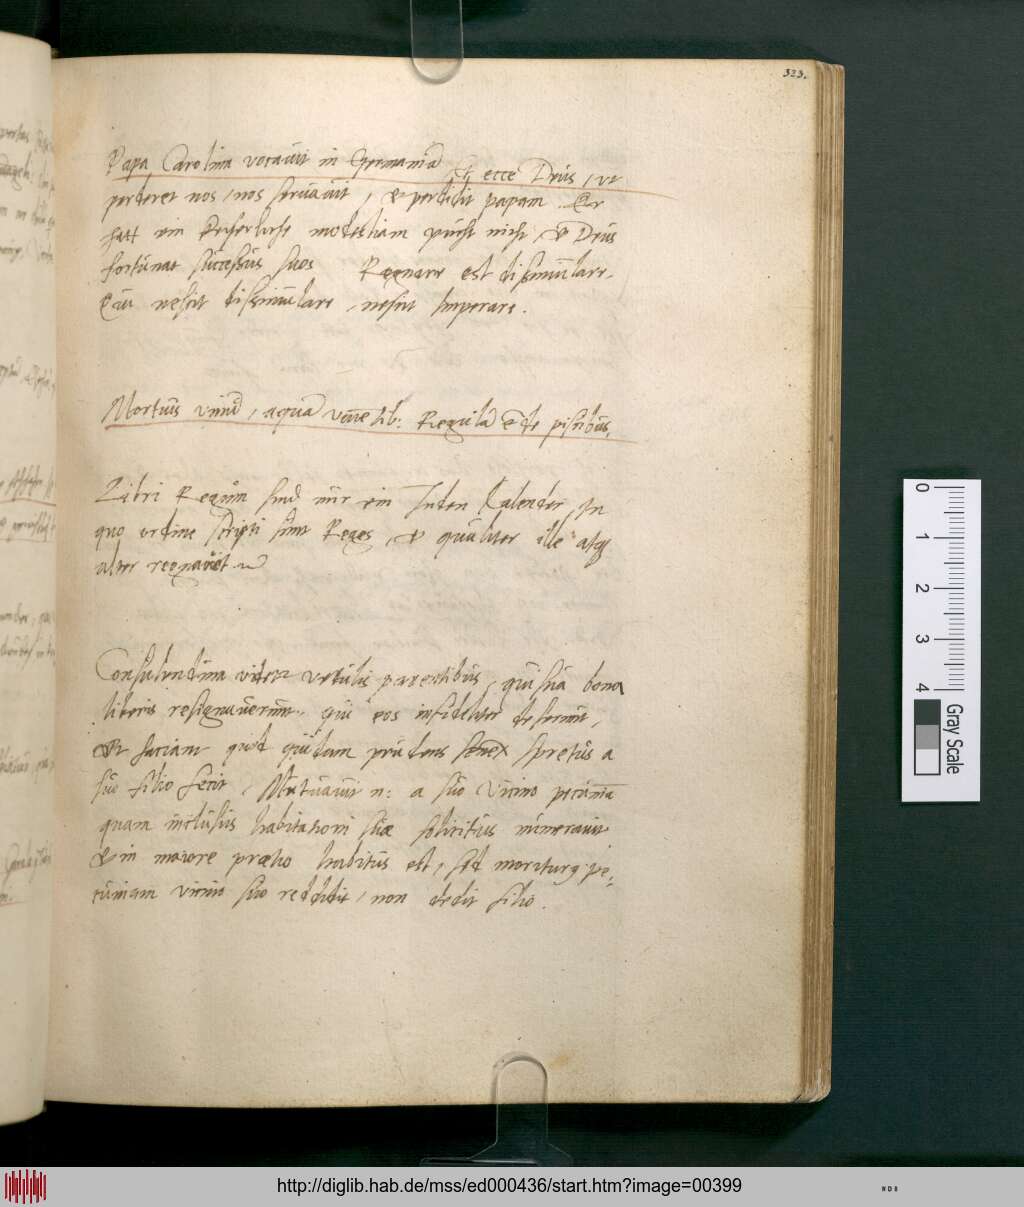 323.
Papa Carolum vocavit in Germaniā Et ecce Deus, ut
perderet nos, nos servavit, & perdidit papam. Er
hatt ein modestiam nicht, & Deus
fortunat successus suos Regnare est dissimulare,
Qui nescit dissimulare, nescit Imperare.
Mortuus , aquā Regulā ē de piscibus.
Libri Regum sind nür ein Juden Kalender, In
quo ordine scripti sunt Reges, & qualiter ille atq
alter regnavit
Consulendum vetulis parentibus, qui sua bona
liberis resignaverunt, qui eos infideliter deserunt,
Et faciam quod quidam prudens senex spretus a
suo filio fecit, Mutuavit n: a suo vicino pecuniā
quam inclusus habitationi suæ solicitius numeravit
& in maiore prætio habitus est, sed moriturus pe-
cuniam vicino suo reddidit, non dedit filio.
0
1
2
3
4
Gray Scale
http://diglib.hab.de/mss/ed000436/start.htm?image=00399